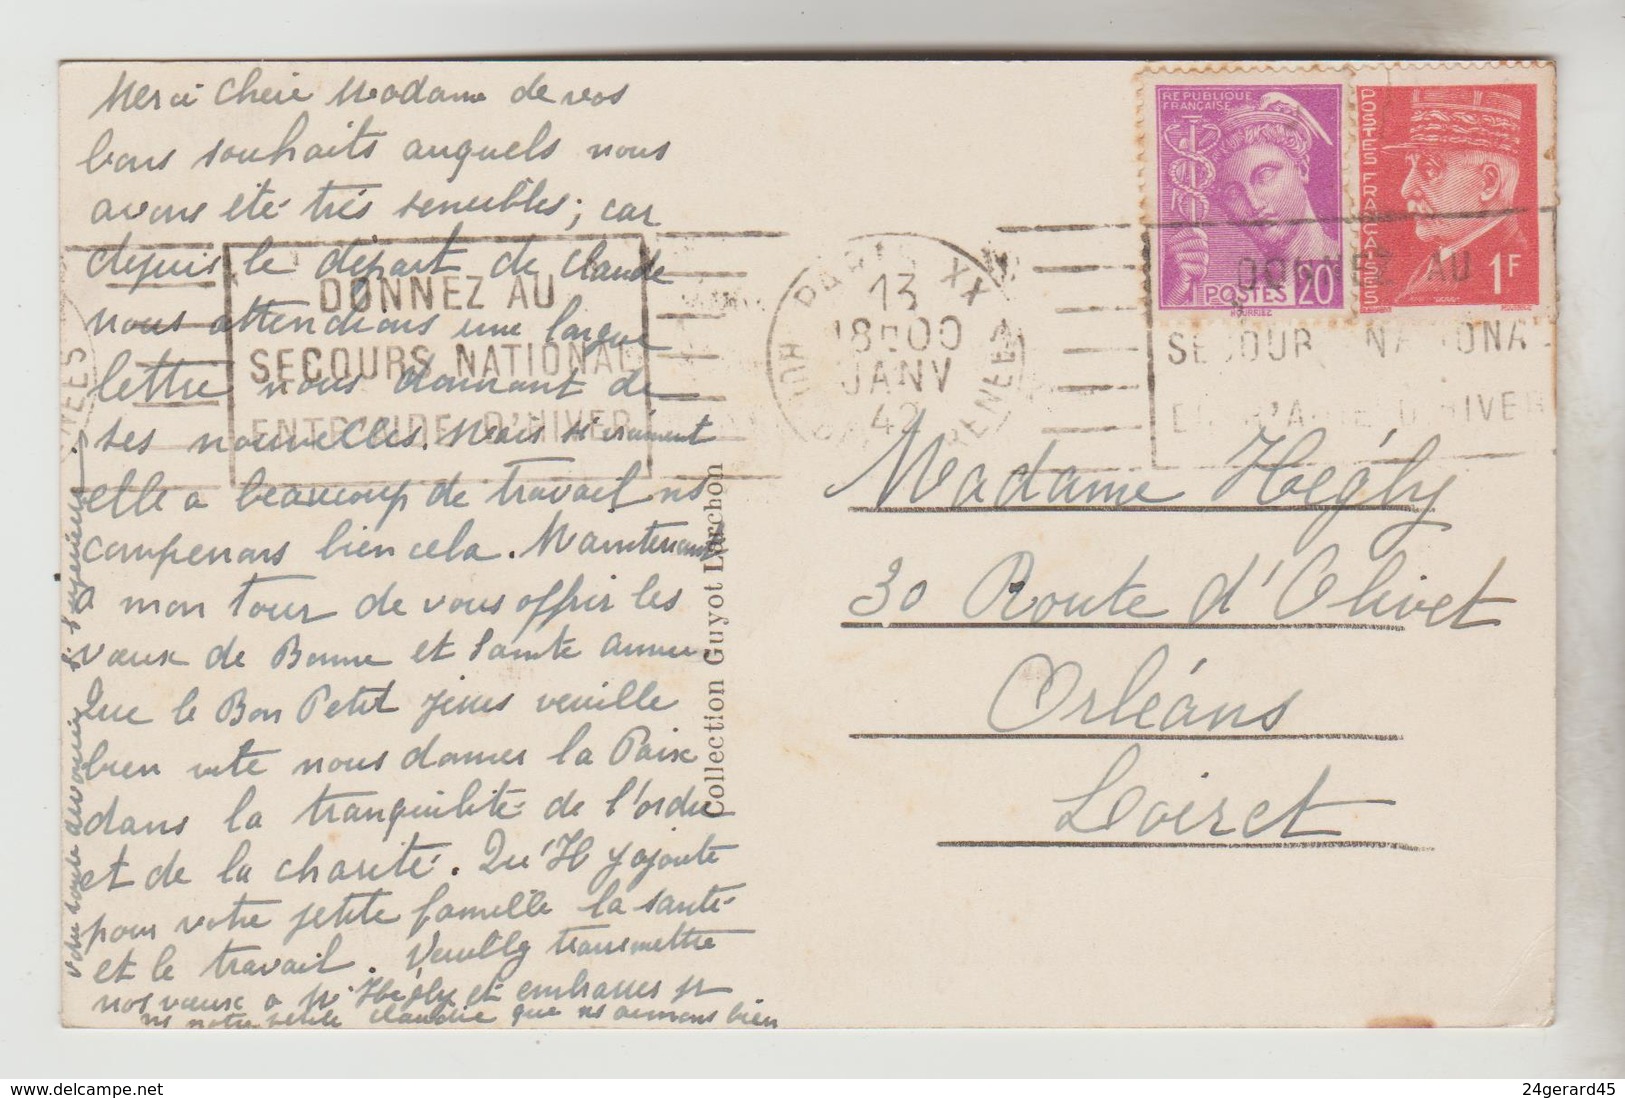 Merci Chère Madame de vos
bons souhaits auquels nous
avons été très sensibles; car
depuis le départ de Claude
nous attendions une longue
lettre nous donnant de
ses nouvelles. Mais si vraiment
elle a beaucoup de travail ns
comprenons bien cela. Maintenant
à mon tour de vous offrir les
vœux de Bonne et Sainte année
Que le Bon Petit Jésus veuille
bien vite nous donner la Paix
dans la tranquilité de l'ordre
et de la charité. Qu'Il y ajoute
pour votre petite famille la santé
et le travail. Veuillez transmettre
nos vœux à Mr Hégly et embrasses pr
ns notre petite Claudie que ns aimons bien
votre toute dévouée
S. Supérieure
Collection Guyot Larchon
REPUBLIQUE
FRANÇAISE
POSTES 20
HOURRIEZ
POSTES FRANÇAISES
1F
PARIS XX
13
18H00
JANV
42
PYRENEES
DONNEZ AU
SECOURS NATIONAL
ENTR'AIDE D'HIVER
DONNEZ AU
SECOURS NATIONAL
ENTR'AIDE D'HIVER
Madame Hégly
30 Route d'Olivet
Orléans
Loiret
24gerard45
www.delcampe.net